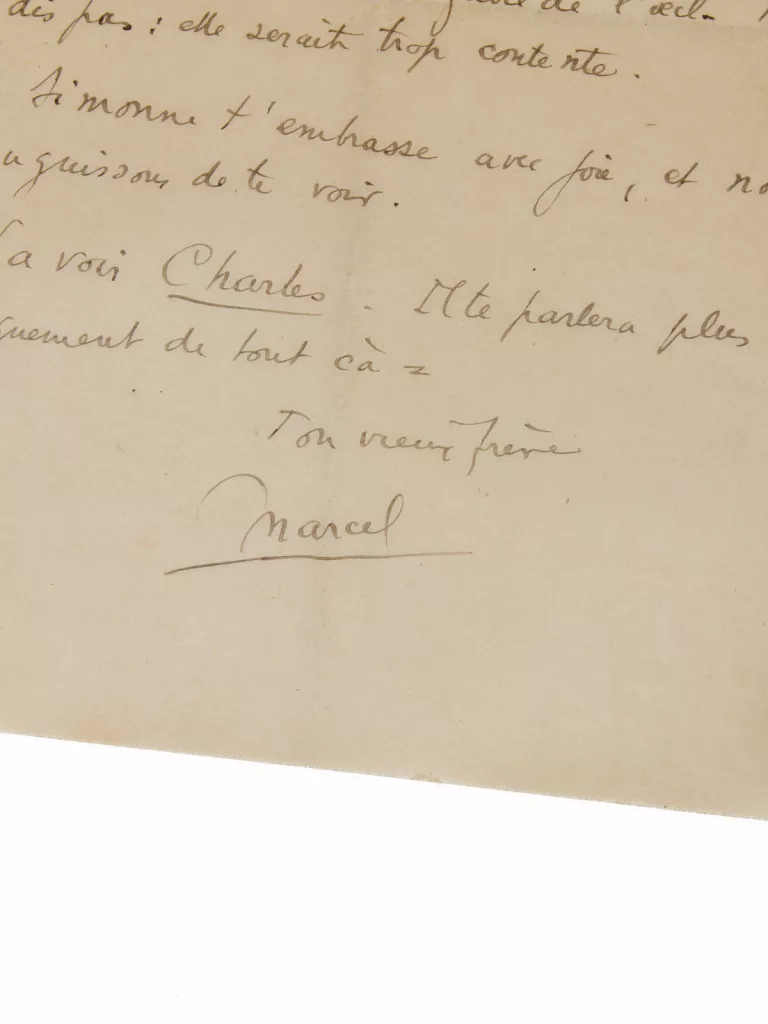 de l'œil.
dis pas : elle serait trop contente.
Simonne t'embrasse avec joie, et no
guissons de te voir.
Va voir Charles. Il te parlera plus
guement de tout cà =
Ton vieux frère
Marcel